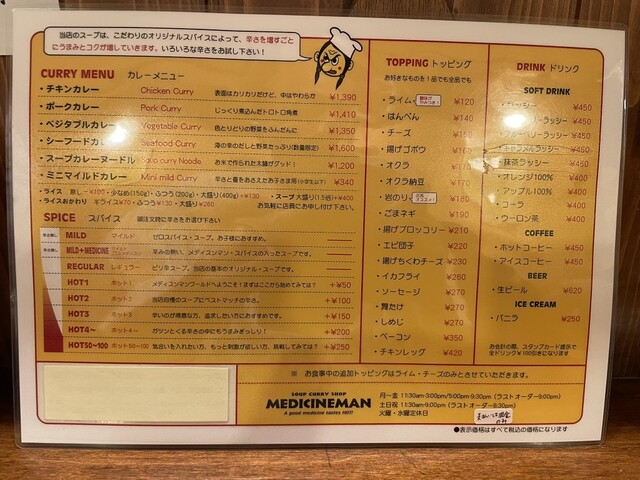 当店のスープは、こだわりのオリジナルスパイスによって、辛さを増すごとに
うまみとコクが増していきます。いろいろな辛さをお試し下さい！
CURRY MENU カレーメニュー
・チキンカレー Chicken Curry 表面はカリカリだけど、中はやわらか ¥1,390
・ポークカレー Pork Curry じっくり煮込んだトロトロ角煮 ¥1,410
・ベジタブルカレー Vegetable Curry 色とりどりの野菜をふんだんに ¥1,350
・シーフードカレー Seafood Curry 海の幸のだしと野菜たっぷり(数量限定) ¥1,600
・スープカレーヌードル Soup curry Noodle お米で作られた太麺がグッド！ ¥1,200
・ミニマイルドカレー Mini mild Curry 辛さと量をおさえたお子さま用 ¥340
・ライス 無し−¥100・少なめ(150g)・ふつう(200g)・大盛り(400g)+¥130 ・スープ大盛り(1.5倍)+¥400
・ライスおかわり 半ライス¥70・ふつう¥130・大盛り¥260 お気軽に店員にお申し付け下さい。
SPICE スパイス 御注文時に辛さをお選び下さい
MILD マイルド ゼロスパイス・スープ。お子様におすすめ。
MILD+MEDICINE 辛みの無い、メディスンマン・スパイスの入ったスープです。
REGULAR レギュラー ピリ辛スープ。当店の基本のオリジナル・スープです。
HOT1 ホット1 メディスンマンワールドへようこそ！まずはここから始めてみては？ +¥50
HOT2 ホット2 当店自慢のスープにベストマッチの辛さ。 +¥100
HOT3 ホット3 辛いのが得意な方、追求したい方におすすめです。 +¥150
HOT4〜 ホット4〜 ガツンとくる辛さの中にもうまみぎっしり！ +¥200
HOT50~100 ホット50~100 気合いを入れたい方、もっと刺激が欲しい方、挑戦してみては？ +¥250
TOPPING トッピング
お好きなものを1品でも全品でも
・ライム ¥120
・はんぺん ¥140
・チーズ ¥150
・揚げゴボウ ¥160
・オクラ ¥170
・オクラ納豆 ¥170
・岩のり ¥180
・ごまネギ ¥190
・揚げブロッコリー ¥210
・エビ団子 ¥220
・揚げちくわチーズ ¥230
・イカフライ ¥260
・ソーセージ ¥270
・舞たけ ¥270
・しめじ ¥270
・ベーコン ¥350
・チキンレッグ ¥420
DRINK ドリンク
SOFT DRINK
・ラッシー ¥450
ラッシー ¥450
・ブルーベリーラッシー ¥450
・キャラメルラッシー ¥450
・抹茶ラッシー ¥450
・オレンジ100% ¥400
・アップル100% ¥400
・コーラ ¥400
・ウーロン茶 ¥400
COFFEE
・ホットコーヒー ¥450
・アイスコーヒー ¥450
BEER
・生ビール ¥620
ICE CREAM
・バニラ ¥250
お会計の際、スタンプカード提示で
全ドリンク¥100引きになります
※ お食事中の追加トッピングはライム・チーズのみとさせていただきます。
SOUP CURRY SHOP
MEDICINEMAN
A good medicine tastes HOT!
月〜金 11:30am-3:00pm/5:00pm-9:30pm (ラストオーダー9:00pm)
土日祝 11:30am-9:00pm (ラストオーダー8:30pm)
火曜・水曜定休日
●表示価格はすべて税込の価格になります